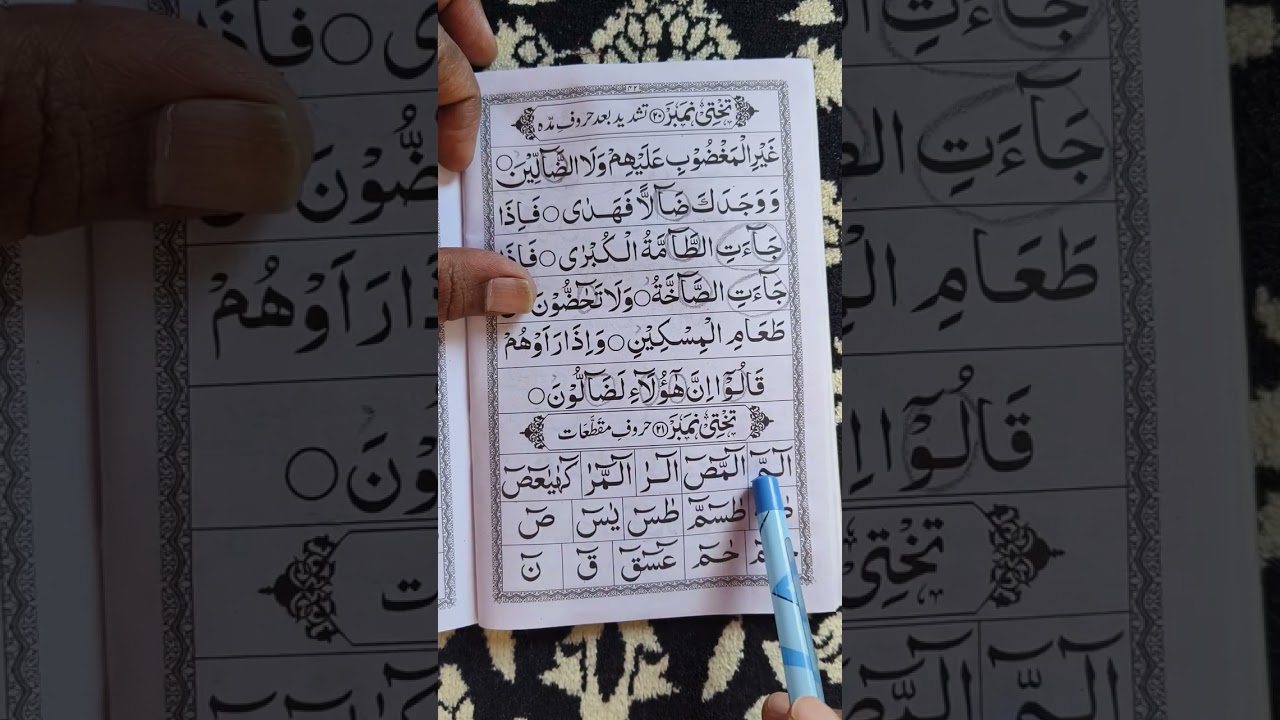 ۳۳
تختی نمبر ۲۰ تشدید بعد حروف مدّہ
غَيْرِ الْمَغْضُوْبِ عَلَيْهِمْ وَلَا الضَّآلِّيْنَ ○
وَ وَجَدَكَ ضَآلًّا فَهَدٰى ○ فَاِذَا
جَآءَتِ الطَّآمَّةُ الْكُبْرٰى ○ فَاِذَا
جَآءَتِ الصَّآخَّةُ ○ وَلَا تَحٰٓضُّوْنَ
طَعَامِ الْمِسْكِيْنِ ○ وَاِذَا رَاَوْهُمْ
قَالُوْٓا اِنَّ هٰٓؤُلَآءِ لَضَآلُّوْنَ ○
تختی نمبر ۲۱ حروف مقطّعات
الٓمّٓ الٓمّٓصٓ الٓرٰ الٓمّٓرٰ كٓهٰيٰعٓصٓ
طٰسٓمّٓ طٰسٓ يٰسٓ صٓ
حٰمٓ عٓسٓقٓ قٓ نٓ